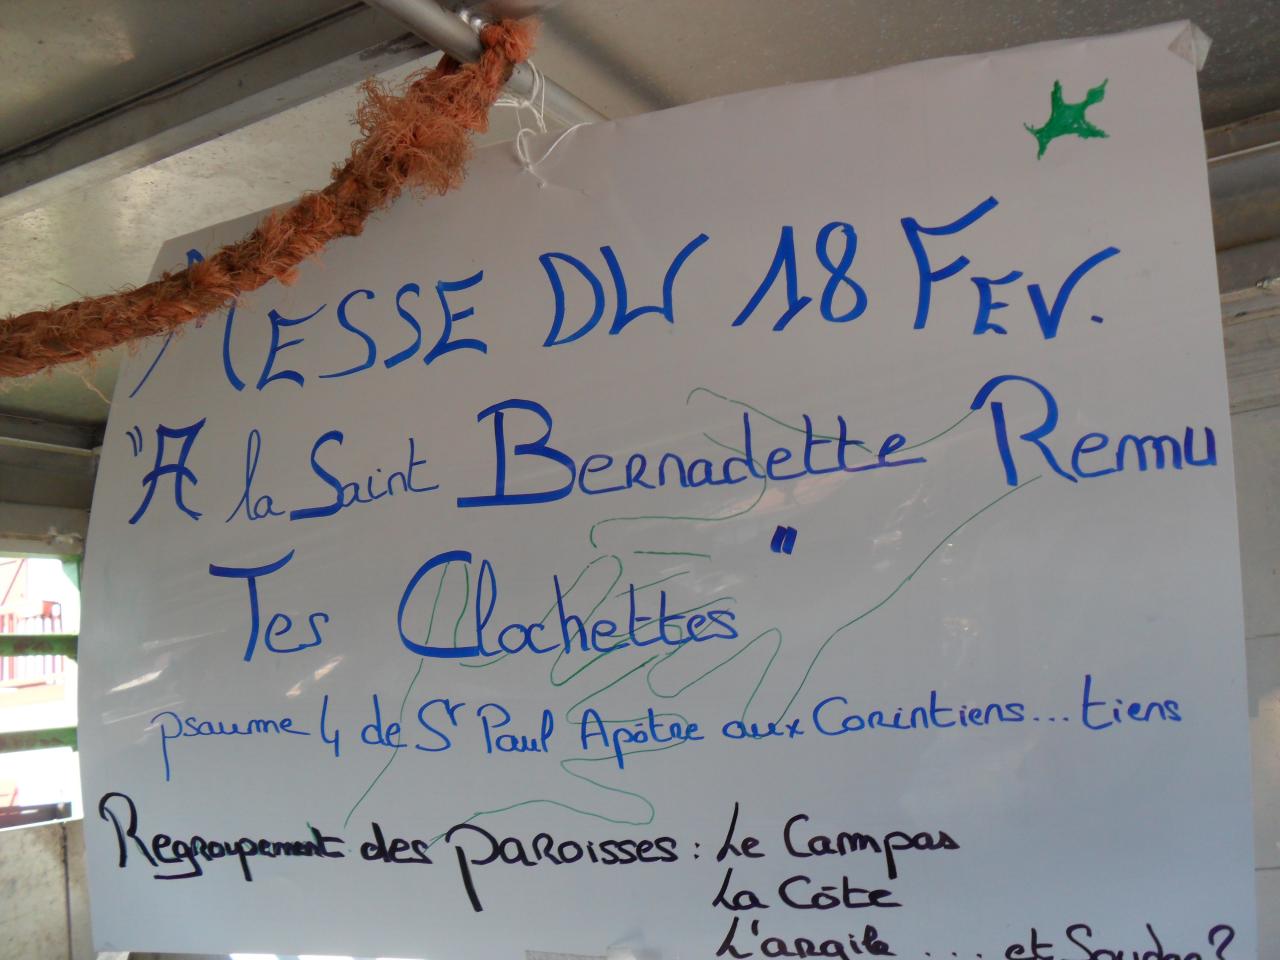 MESSE DU 18 FEV.
"A la Saint Bernadette Remu
Tes Clochettes"
psaume 4 de St Paul Apôtre aux Corintiens...tiens
Regroupement des paroisses : Le Campas
La Côte
L'argile .... et Soudan?